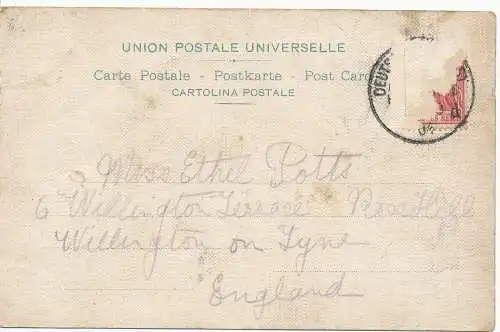 UNION POSTALE UNIVERSELLE
Carte Postale - Postkarte - Post Card
CARTOLINA POSTALE
DEUT
Miss Ethel Potts
6 Willington Terrace Rose Hill
Willington on Tyne
England